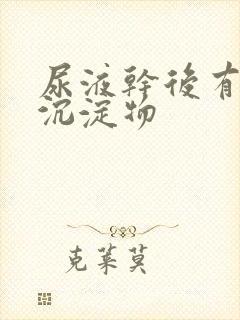 尿液幹後有
沉淀物
克莱莫